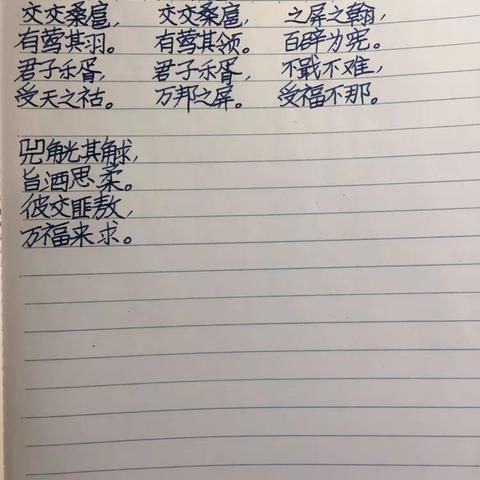 交交桑扈，
有莺其羽。
君子乐胥，
受天之祜。
交交桑扈，
有莺其领。
君子乐胥，
万邦之屏。
之屏之翰，
百辟为宪。
不戢不难，
受福不那。
兕觥其觩，
旨酒思柔。
彼交匪敖，
万福来求。